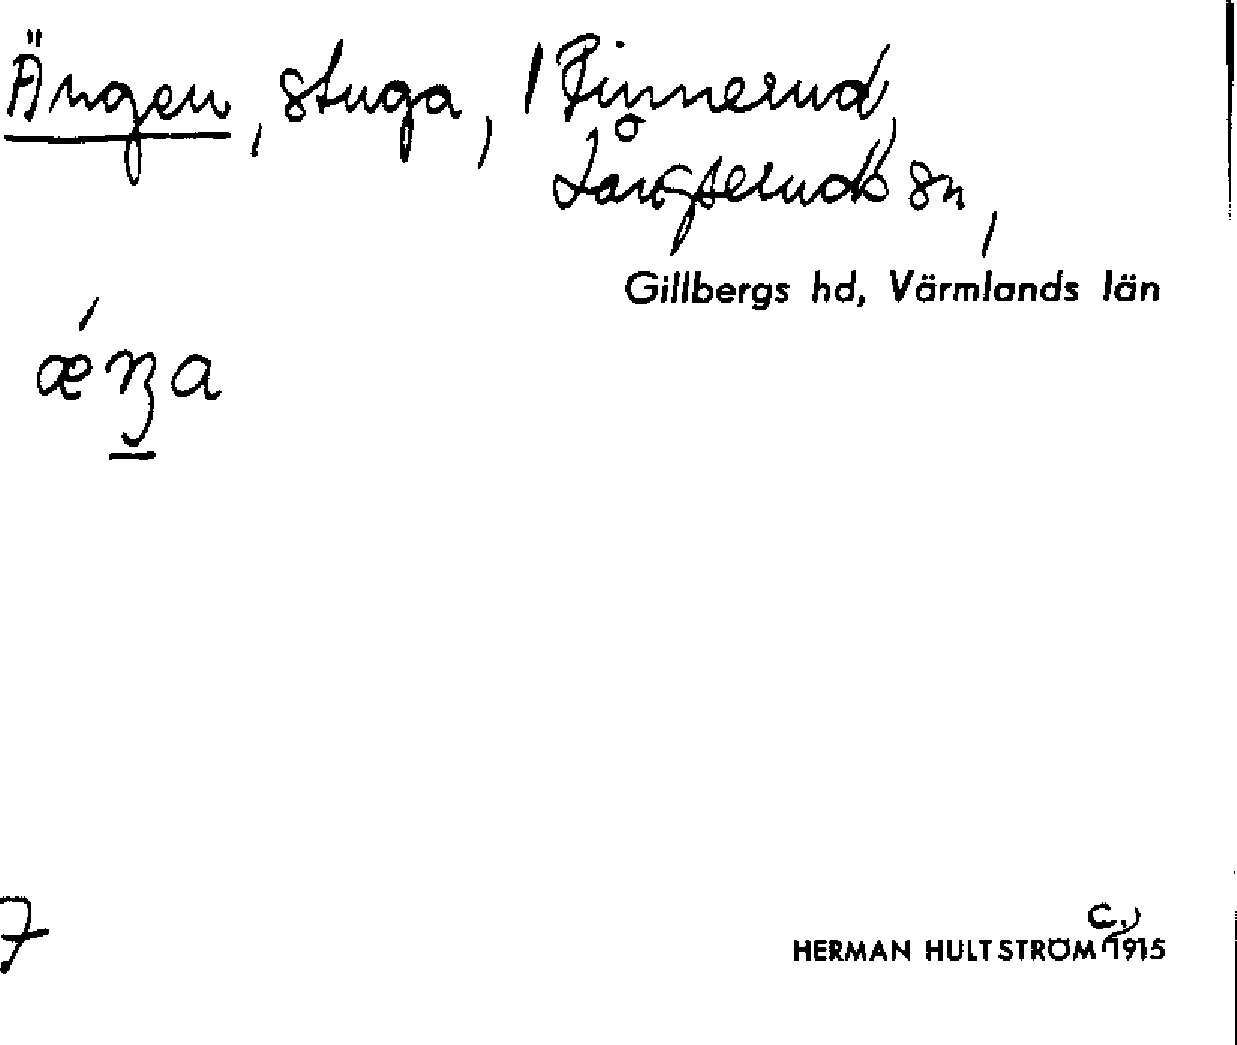 Ängen, stuga, i Finnerud,
Långseruds sn,
Gillbergs hd, Värmlands län
ǽŋa
7
C.
HERMAN HULTSTRÖM 1915